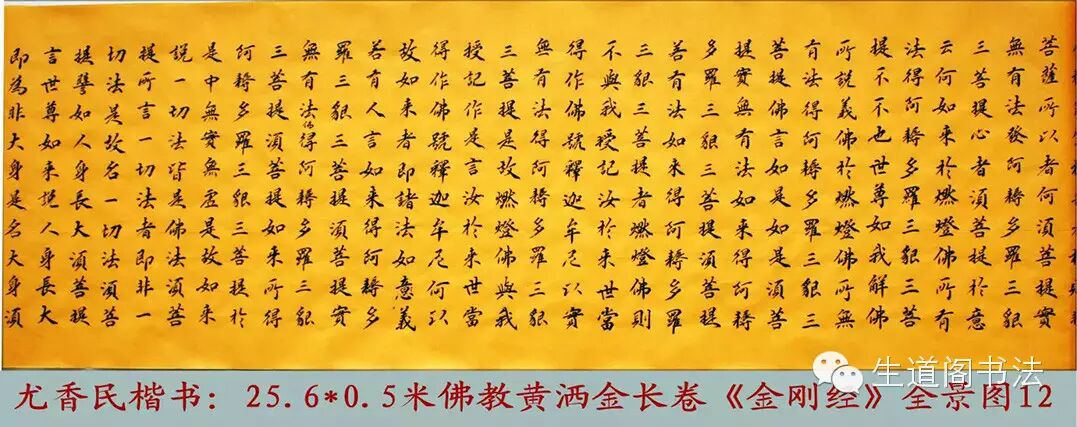 菩薩所以者何須菩提實
無有法發阿耨多羅三貌
三菩提心者須菩提於意
云何如來於燃燈佛所有
法得阿耨多羅三貌三菩
提不不也世尊如我解佛
所說義佛於燃燈佛所無
有法得阿耨多羅三貌三
菩提佛言如是如是須菩
提實無有法如來得阿耨
多羅三貌三菩提須菩提
若有法如來得阿耨多羅
三貌三菩提者燃燈佛則
不與我授記汝於來世當
得作佛號釋迦牟尼以實
無有法得阿耨多羅三貌
三菩提是故燃燈佛與我
授記作是言汝於來世當
得作佛號釋迦牟尼何以
故如來者即諸法如意義
若有人言如來得阿耨多
羅三貌三菩提須菩提實
無有法佛得阿耨多羅三貌
三菩提須菩提如來所得
阿耨多羅三貌三菩提於
是中無實無虛是故如來
說一切法皆是佛法須菩
提所言一切法者即非一
切法是故名一切法須菩
提譬如人身長大須菩提
言世尊如來說人身長大
即為非大身是名大身須
生道阁书法
尤香民楷书：25.6*0.5米佛教黄洒金长卷《金刚经》全景图12